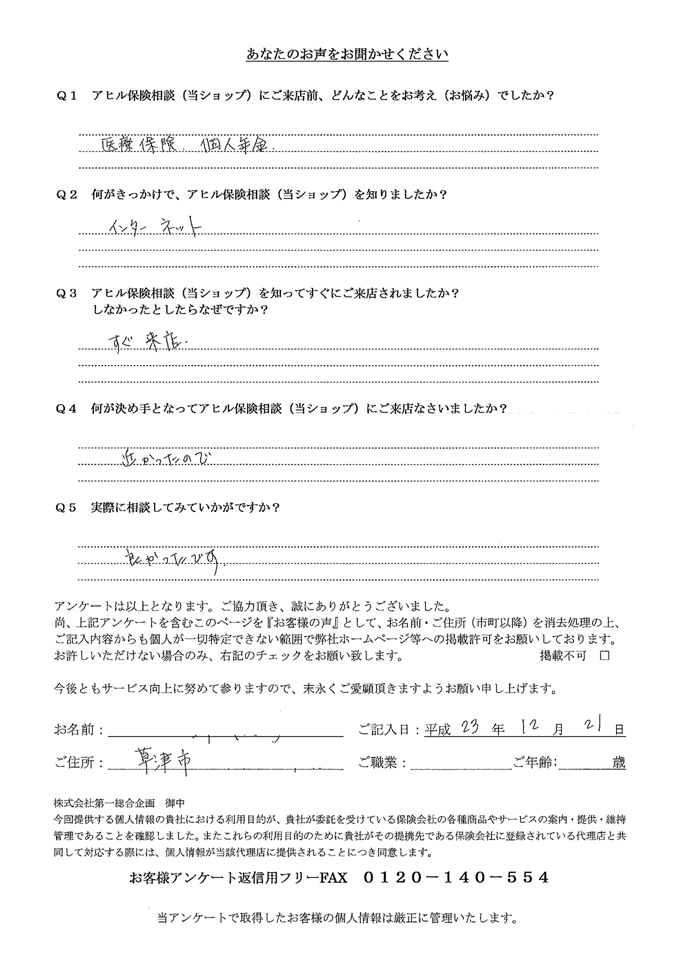 あなたのお声をお聞かせください
Q1 アヒル保険相談（当ショップ）にご来店前、どんなことをお考え（お悩み）でしたか？
医療保険. 個人年金.
Q2 何がきっかけで、アヒル保険相談（当ショップ）を知りましたか？
インターネット
Q3 アヒル保険相談（当ショップ）を知ってすぐにご来店されましたか？
しなかったとしたらなぜですか？
すぐ来店.
Q4 何が決め手となってアヒル保険相談（当ショップ）にご来店なさいましたか？
近かったので
Q5 実際に相談してみていかがですか？
良かったです.
アンケートは以上となります。ご協力頂き、誠にありがとうございました。
尚、上記アンケートを含むこのページを『お客様の声』として、お名前・ご住所（市町以降）を消去処理の上、
ご記入内容からも個人が一切特定できない範囲で弊社ホームページ等への掲載許可をお願いしております。
お許しいただけない場合のみ、右記のチェックをお願い致します。 掲載不可 □
今後ともサービス向上に努めて参りますので、末永くご愛願頂きますようお願い申し上げます。
お名前： ご記入日：平成 23 年 12 月 21 日
ご住所： 草津市 ご職業： ご年齢： 歳
株式会社第一総合企画 御中
今回提供する個人情報の貴社における利用目的が、貴社が委託を受けている保険会社の各種商品やサービスの案内・提供・維持
管理であることを確認しました。またこれらの利用目的のために貴社がその提携先である保険会社に登録されている代理店と共
同して対応する際には、個人情報が当該代理店に提供されることにつき同意します。
お客様アンケート返信用フリーFAX 0120－140－554
当アンケートで取得したお客様の個人情報は厳正に管理いたします。